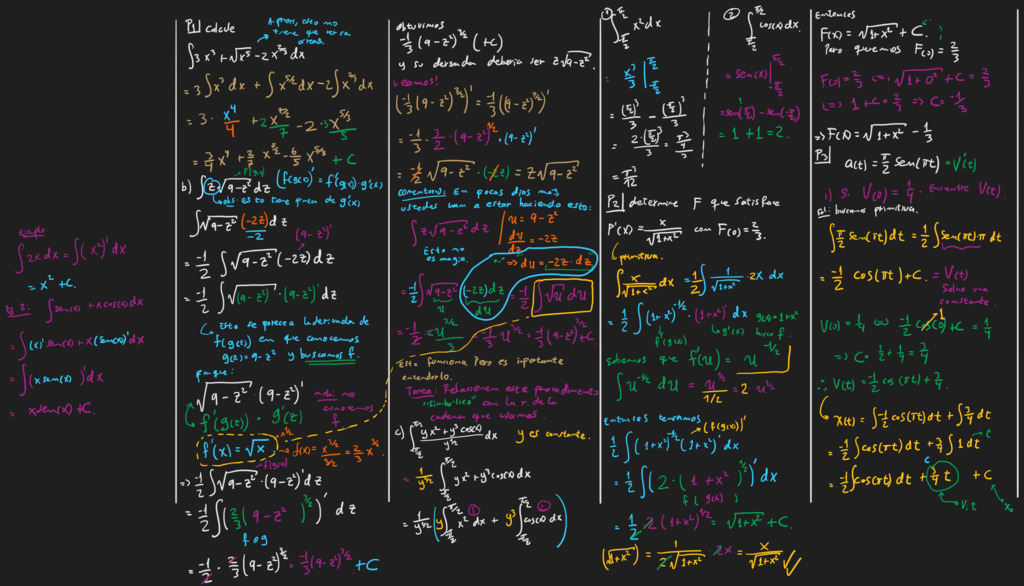 Ejemplo
∫2x dx = ∫(x²)' dx
= x² + C.
Ej 2: ∫sen(x) + x cos(x) dx
= ∫(x)' sen(x) + x (sen(x))' dx
= ∫(x sen(x))' dx
= x sen(x) + C.
P1] calcule
A priori, esto no tiene que ver con areas.
∫3x³ + √x⁵ - 2x^{2/3} dx
= 3∫x³ dx + ∫x^{5/2} dx - 2∫x^{2/3} dx
= 3 · x⁴/4 + 2x^{7/2}/7 - 2 · 3x^{5/3}/5
= 3/4 x⁴ + 2/7 x^{7/2} - 6/5 x^{5/3} + C
f'(g(x))
b) ∫z√(9-z²) dz (f(g(x)))' = f'(g(x)) · g'(x)
obs: esto tiene pinta de g'(x)
∫√(9-z²) (-2z)/-2 dz
(9-z²)'
= -1/2 ∫√(9-z²) (-2z) dz
= -1/2 ∫√(9-z²) · (9-z²)' dz
Esto se parece a la derivada de
f(g(z)) en que conocemos
g(z) = 9-z² y buscamos f.
porque:
√(9-z²) · (9-z)'
f'(g(z)) · g'(z)
no conocemos f
f'(x) = √x x^{1/2} ⇒ f(x) = x^{3/2}/3/2 = 2/3 x^{3/2}
f'(g(x))
⇒ -1/2 ∫√(9-z²) · (9-z²)' dz
= -1/2 ∫(2/3 (9-z²)^{3/2})' dz
f o g
= -1/2 · 2/3 (9-z²)^{3/2} = -1/3 (9-z²)^{3/2} + C
obtuvimos
-1/3 (9-z²)^{3/2} (+C)
y su derivada deberia ser z√(9-z²).
veamos!
(-1/3 (9-z²)^{3/2})' = -1/3 ((9-z²)^{3/2})'
= -1/3 · 3/2 · (9-z²)^{1/2} · (9-z²)'
= -1/2 √(9-z²) · (-2z) = z√(9-z²)
comentario: En pocos dias mas
ustedes van a estar haciendo esto:
∫z√(9-z²) dz | u = 9-z²
du/dz = -2z
Esto no es magia.
⇒ du = -2z · dz
= -1/2 ∫√(9-z²) (-2z)dz = -1/2 ∫√u du
u du
= -1/2 · u^{3/2}/3/2 = -1/3 u^{3/2} = -1/3 (9-z²)^{3/2} + C
Esto funciona pero es importante
entenderlo.
Tarea: Relacionen este procedimiento
"simbolico" con la r. de la
cadena que usamos.
c) ∫_{-π/2}^{π/2} (yx² + y³cos(x))/y^{1/2} dx y es constante.
= 1/y^{1/2} ∫_{-π/2}^{π/2} yx² + y³cos(x) dx
= 1/y^{1/2} (y∫_{-π/2}^{π/2} x² dx + y³∫_{-π/2}^{π/2} cos(x) dx)
① ②
① ∫_{-π/2}^{π/2} x² dx
= x³/3 |_{-π/2}^{π/2}
= (π/2)³/3 - (-π/2)³/3
= 2·(π/2)³/3 = π³/4/3
= π³/12
② ∫_{-π/2}^{π/2} cos(x) dx
= sen(x) |_{-π/2}^{π/2}
= sen(π/2) - sen(-π/2)
= 1 + 1 = 2.
P2] determine F que satisface
F'(x) = x/√(1+x²) con F(0) = 2/3.
primitiva.
∫x/√(1+x²) dx = 1/2 ∫1/√(1+x²) · 2x dx
= 1/2 ∫(1+x²)^{-1/2} · (1+x²)' dx g(x) = 1+x²
f'(g(x)) g'(x) busco f.
sabemos que f'(u) = u^{-1/2}
∫u^{-1/2} du = u^{1/2}/1/2 = 2·u^{1/2}
Entonces tenemos (f(g(x)))'
1/2 ∫(1+x²)^{-1/2} (1+x²)' dx
= 1/2 ∫(2 · (1+x²)^{1/2})' dx
f(g(x))
= 1/2 · 2 (1+x²)^{1/2} = √(1+x²) + C.
(√(1+x²))' = 1/2√(1+x²) · 2x = x/√(1+x²) ✓
Entonces
F(x) = √(1+x²) + C.
Pero queremos F(0) = 2/3
F(0) = 2/3 ⇔ √(1+0²) + C = 2/3
⇔ 1 + C = 2/3 ⇒ C = -1/3
⇒ F(x) = √(1+x²) - 1/3
P3] a(t) = π/2 sen(πt) = V'(t)
i) Si V(0) = 1/4. Encuentre V(t).
Sol: buscamos primitiva.
∫π/2 sen(πt) dt = 1/2 ∫sen(πt)·π dt
= -1/2 cos(πt) + C. = V(t)
Salvo una constante.
V(0) = 1/4 ⇔ -1/2 cos(0) + C = 1/4
1
⇒ C = 1/2 + 1/4 = 3/4
∴ V(t) = -1/2 cos(πt) + 3/4.
x(t) = ∫-1/2 cos(πt) dt + ∫3/4 dt
= -1/2 ∫cos(πt) dt + 3/4 ∫1 dt
t
= -1/2 ∫cos(πt) dt + 3/4 t + C
V·t x₀